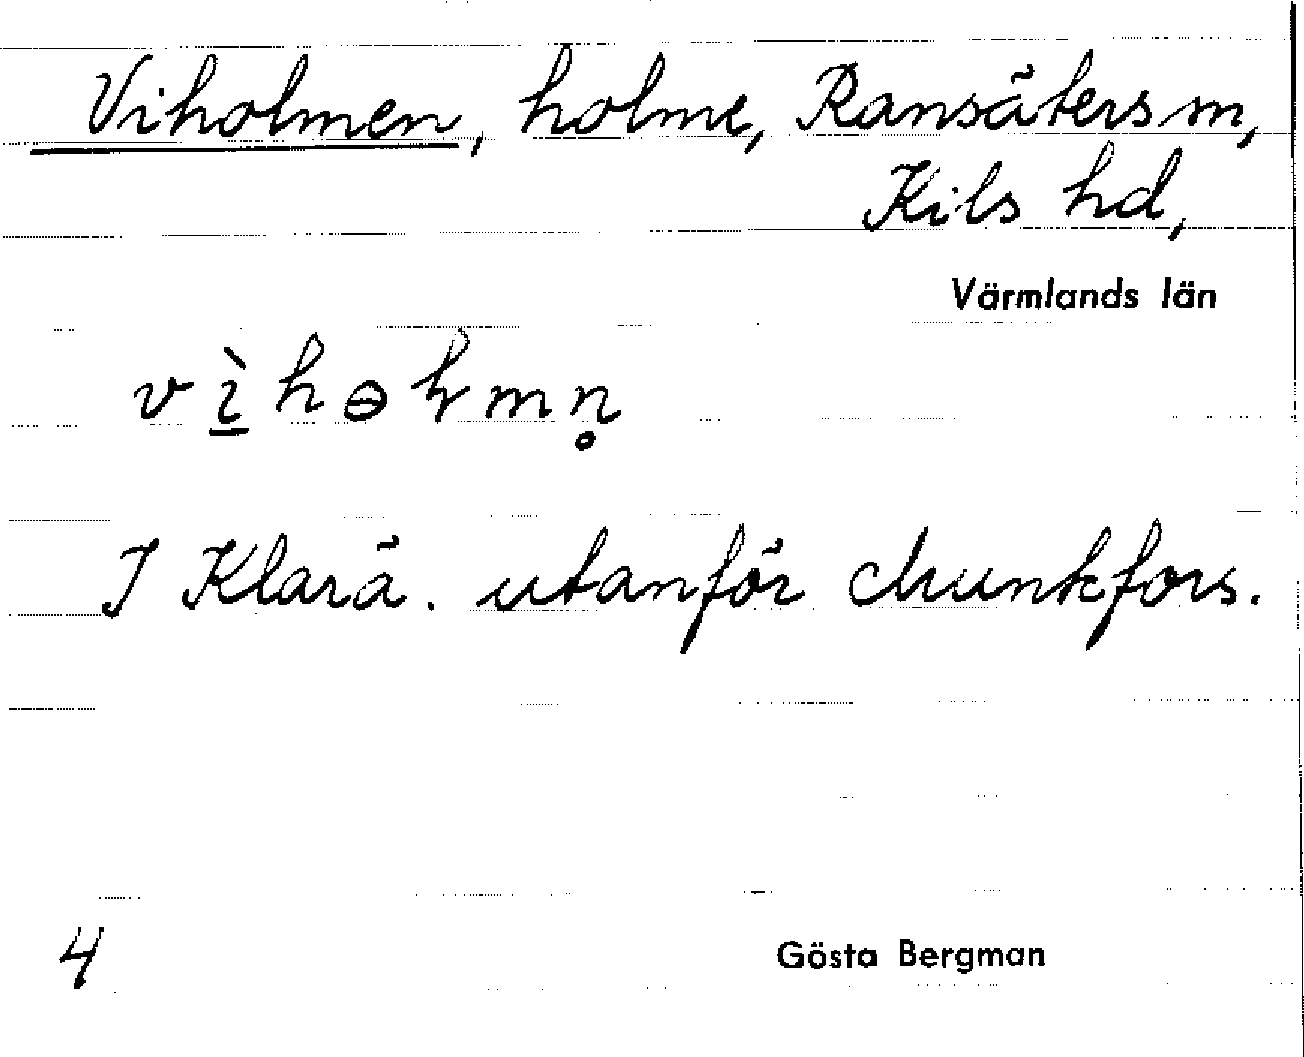 Viholmen, holme, Ransäters sn,
Kils hd,
Värmlands län
vìhɵɽmn̥
I Klarä. utanför Munkfors.
4
Gösta Bergman